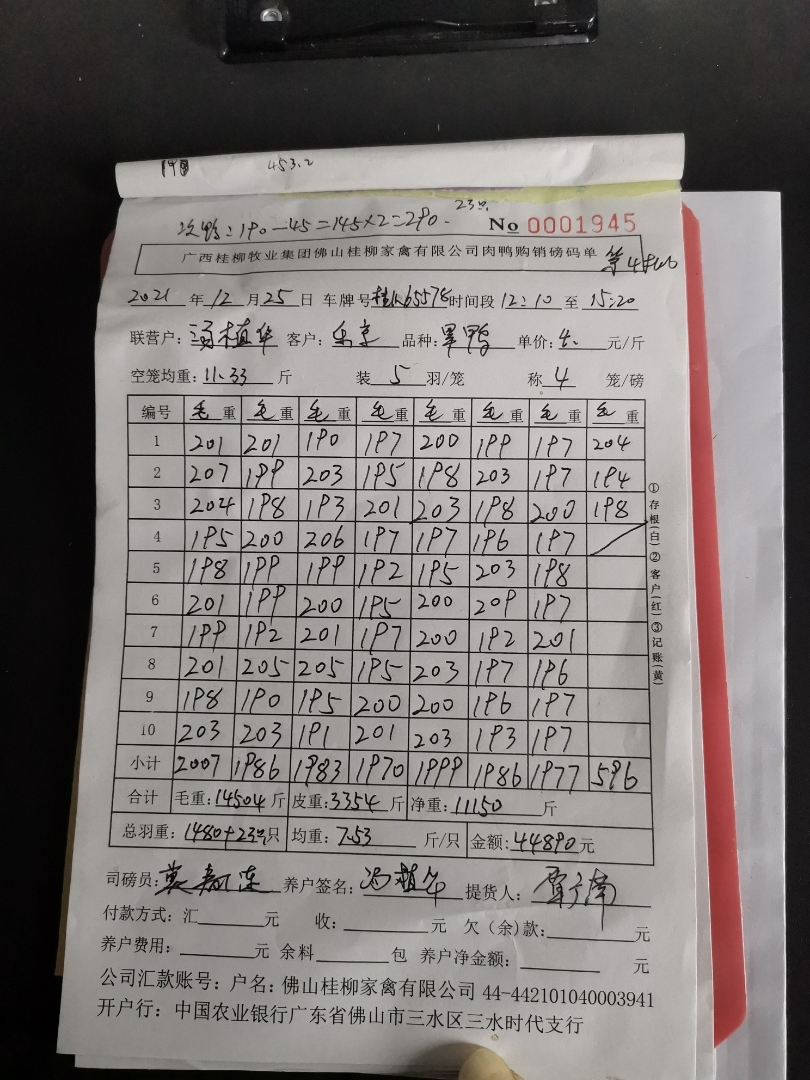 453.2
23只
次鸭:190-45=145×2=290.
No 0001945
广西桂柳牧业集团佛山桂柳家禽有限公司肉鸭购销磅码单
2021 年 12 月 25 日 车牌号 时间段 12:10 至 15:20
联营户: 客户: 品种: 单价:4. 元/斤
空笼均重:11.33 斤 装 5 羽/笼 称 4 笼/磅
编号 毛重 毛重 毛重 毛重 毛重 毛重 毛重 毛重
1 201 201 190 197 200 199 197 204
2 207 199 203 195 198 203 197 194
3 204 198 193 201 203 198 200 198
4 195 200 206 197 197 196 197
5 198 199 199 192 195 203 198
6 201 199 200 195 200 209 197
7 199 192 201 197 200 192 201
8 201 205 205 195 203 197 196
9 198 190 195 200 200 196 197
10 203 203 191 201 203 193 197
小计 2007 1986 1983 1970 1999 1986 1977 596
合计 毛重:14504斤 皮重:3354斤 净重:11150 斤
总羽重:1480+23只只 均重:7.53 斤/只 金额:44890元
司磅员: 养户签名: 提货人:
付款方式:汇 元 收: 元 欠(余)款: 元
养户费用: 元 余料 包 养户净金额: 元
公司汇款账号:户名:佛山桂柳家禽有限公司 44-442101040003941
开户行:中国农业银行广东省佛山市三水区三水时代支行
①存根(白)②客户(红)③记账(黄)